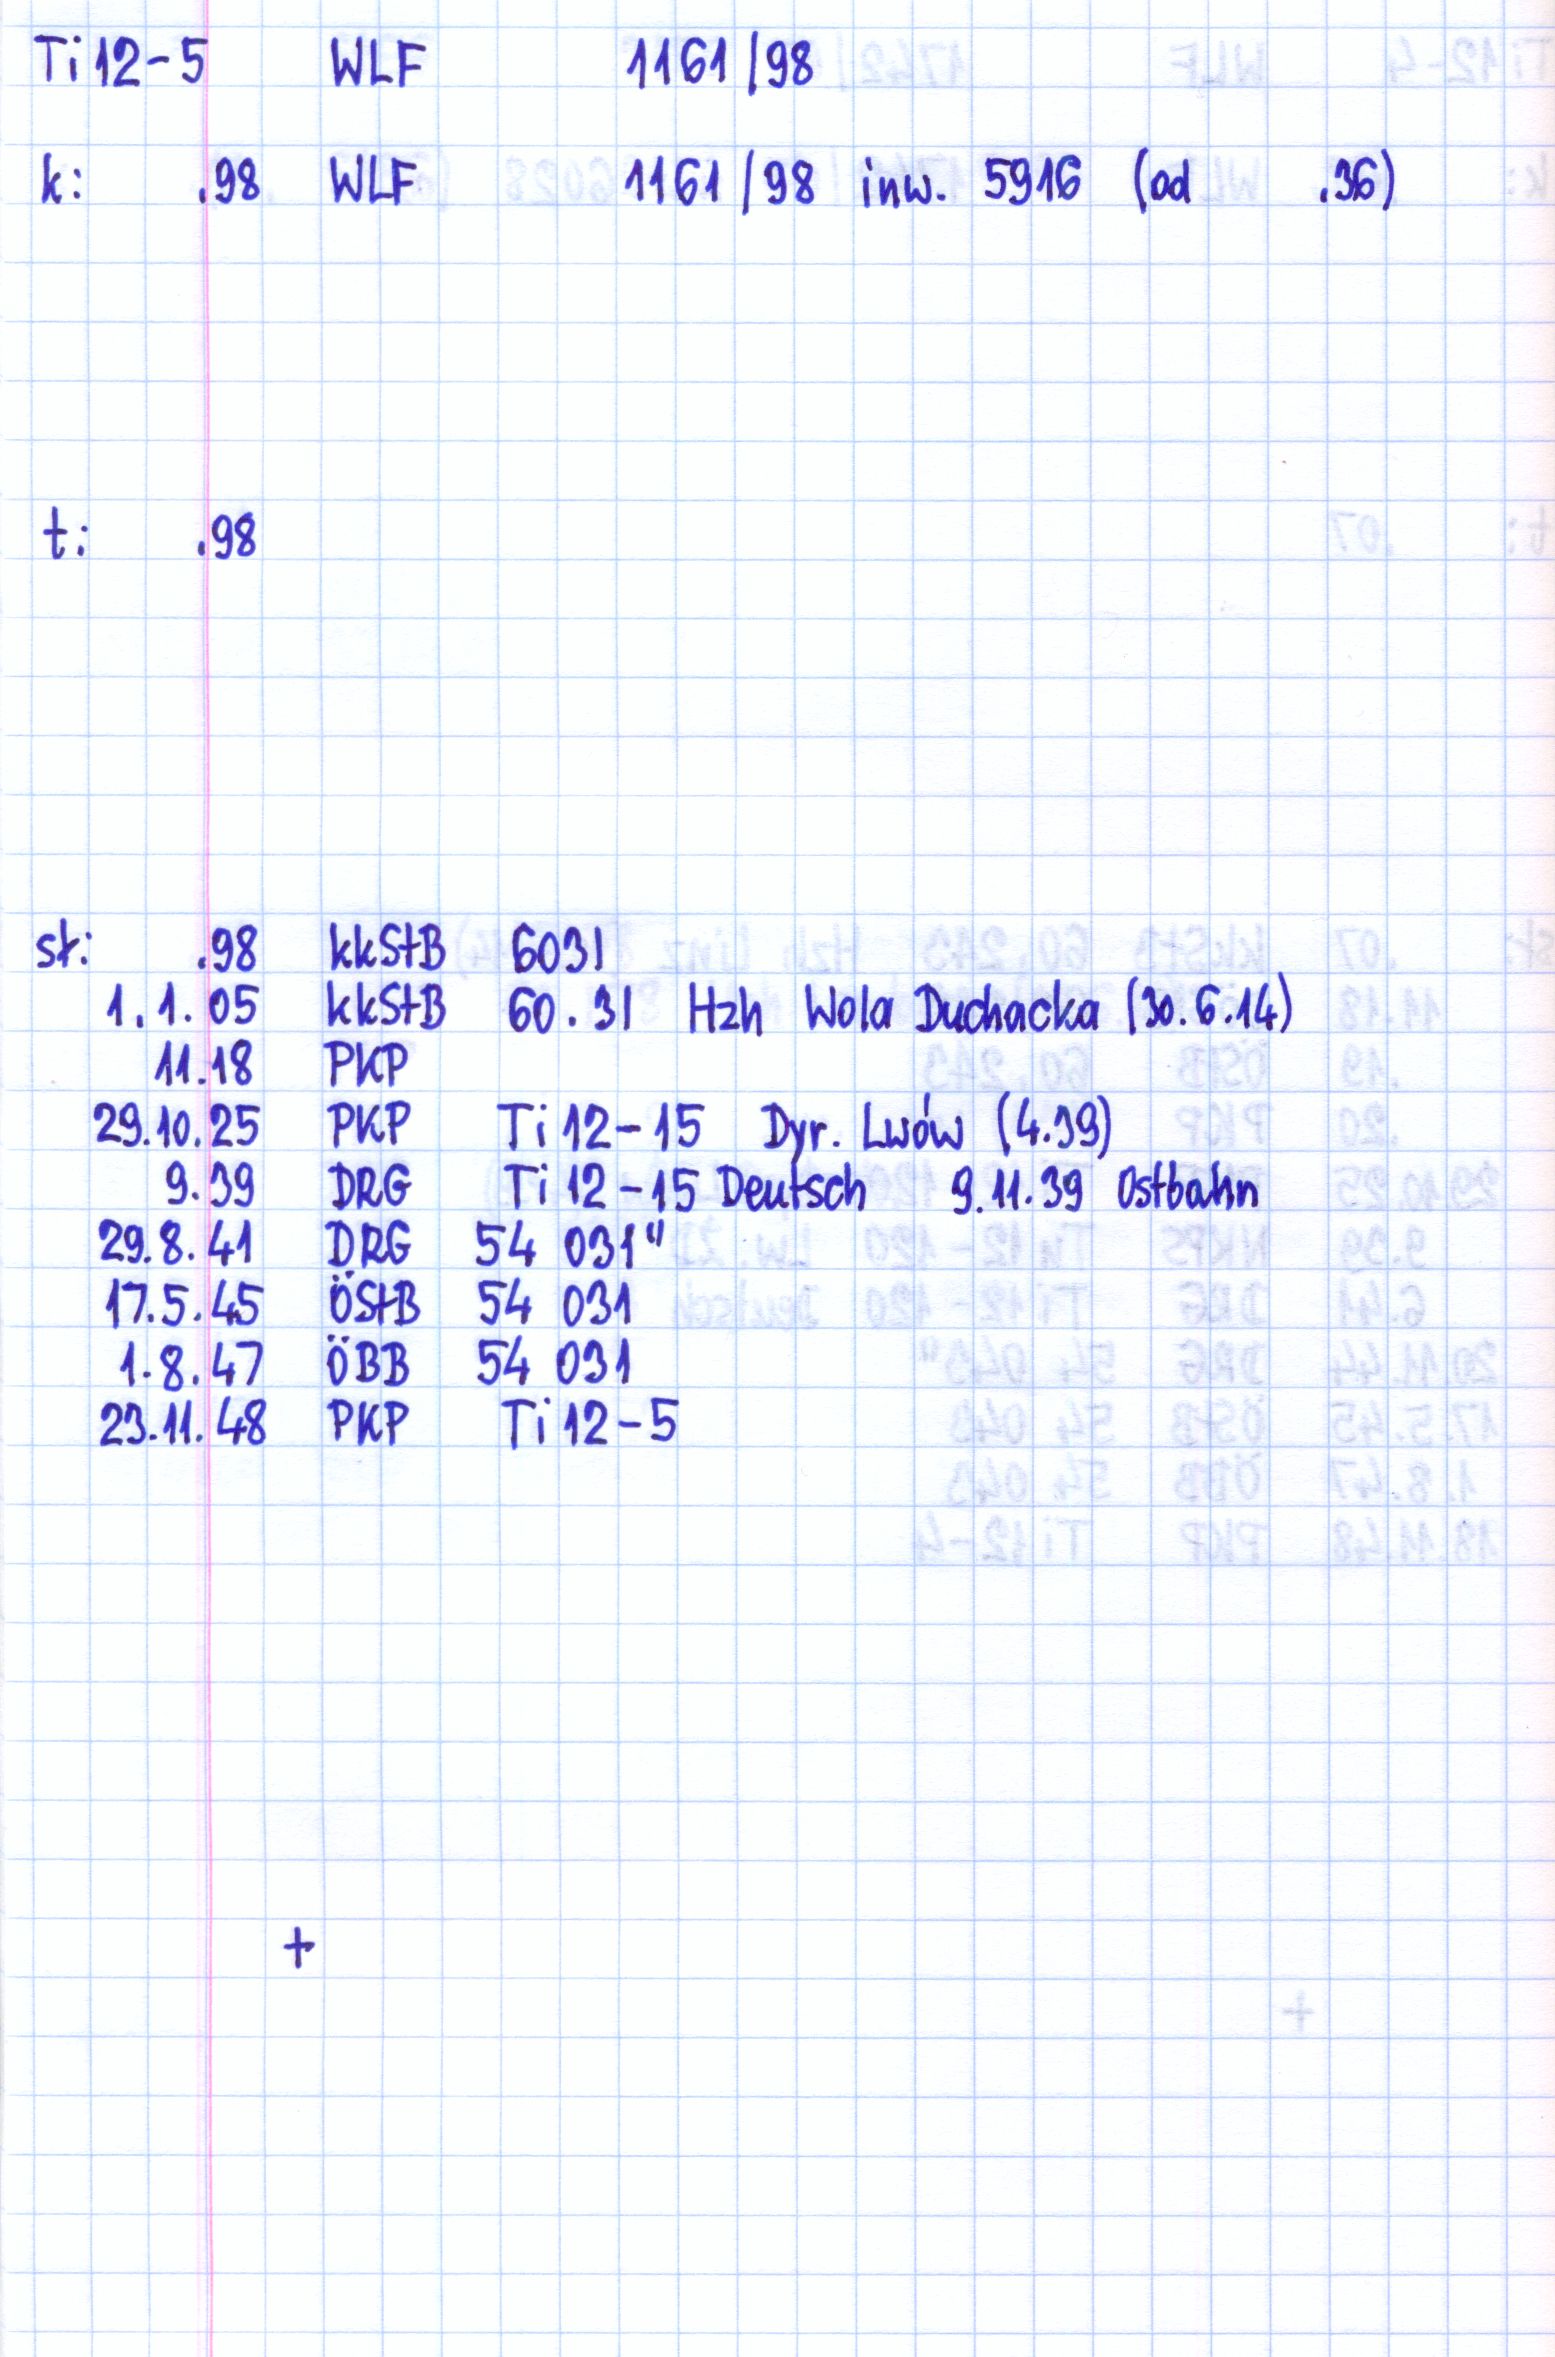 Ti 12-5 WLF 1161/98
k: .98 WLF 1161/98 inw. 5916 (od .36)
t: .98
st: .98 kkStB 6031
1.1.05 kkStB 60.31 Hzh Wola Duchacka (30.6.14)
11.18 PKP
29.10.25 PKP Ti 12-15 Dyr. Lwów (4.39)
9.39 DRG Ti 12-15 Deutsch 9.11.39 Ostbahn
29.8.41 DRG 54 031"
17.5.45 ÖStB 54 031
1.8.47 ÖBB 54 031
23.11.48 PKP Ti 12-5
+